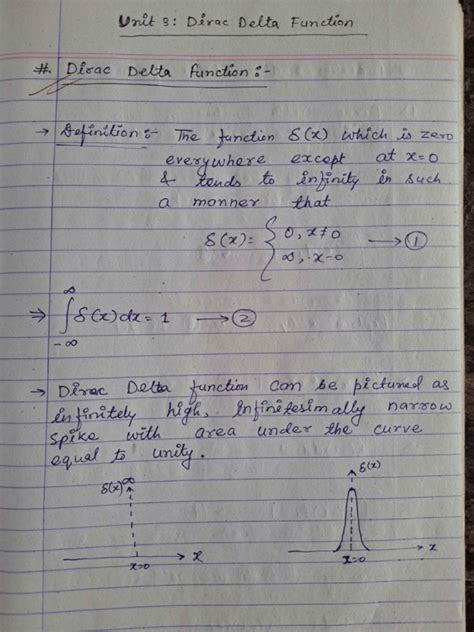 Unit 3: Dirac Delta Function
#. Dirac Delta Function:-
→ Definition:- The function δ(x) which is zero
everywhere except at x=0
& tends to infinity in such
a manner that
δ(x)= { 0, x≠0 → ①
∞, x=0
⇒ ∫ δ(x)dx = 1 → ②
∞
-∞
→ Dirac Delta function can be pictured as
infinitely high, Infinitesimally narrow
spike with area under the curve
equal to unity.
δ(x) ∞
x=0
x
δ(x)
x=0
x